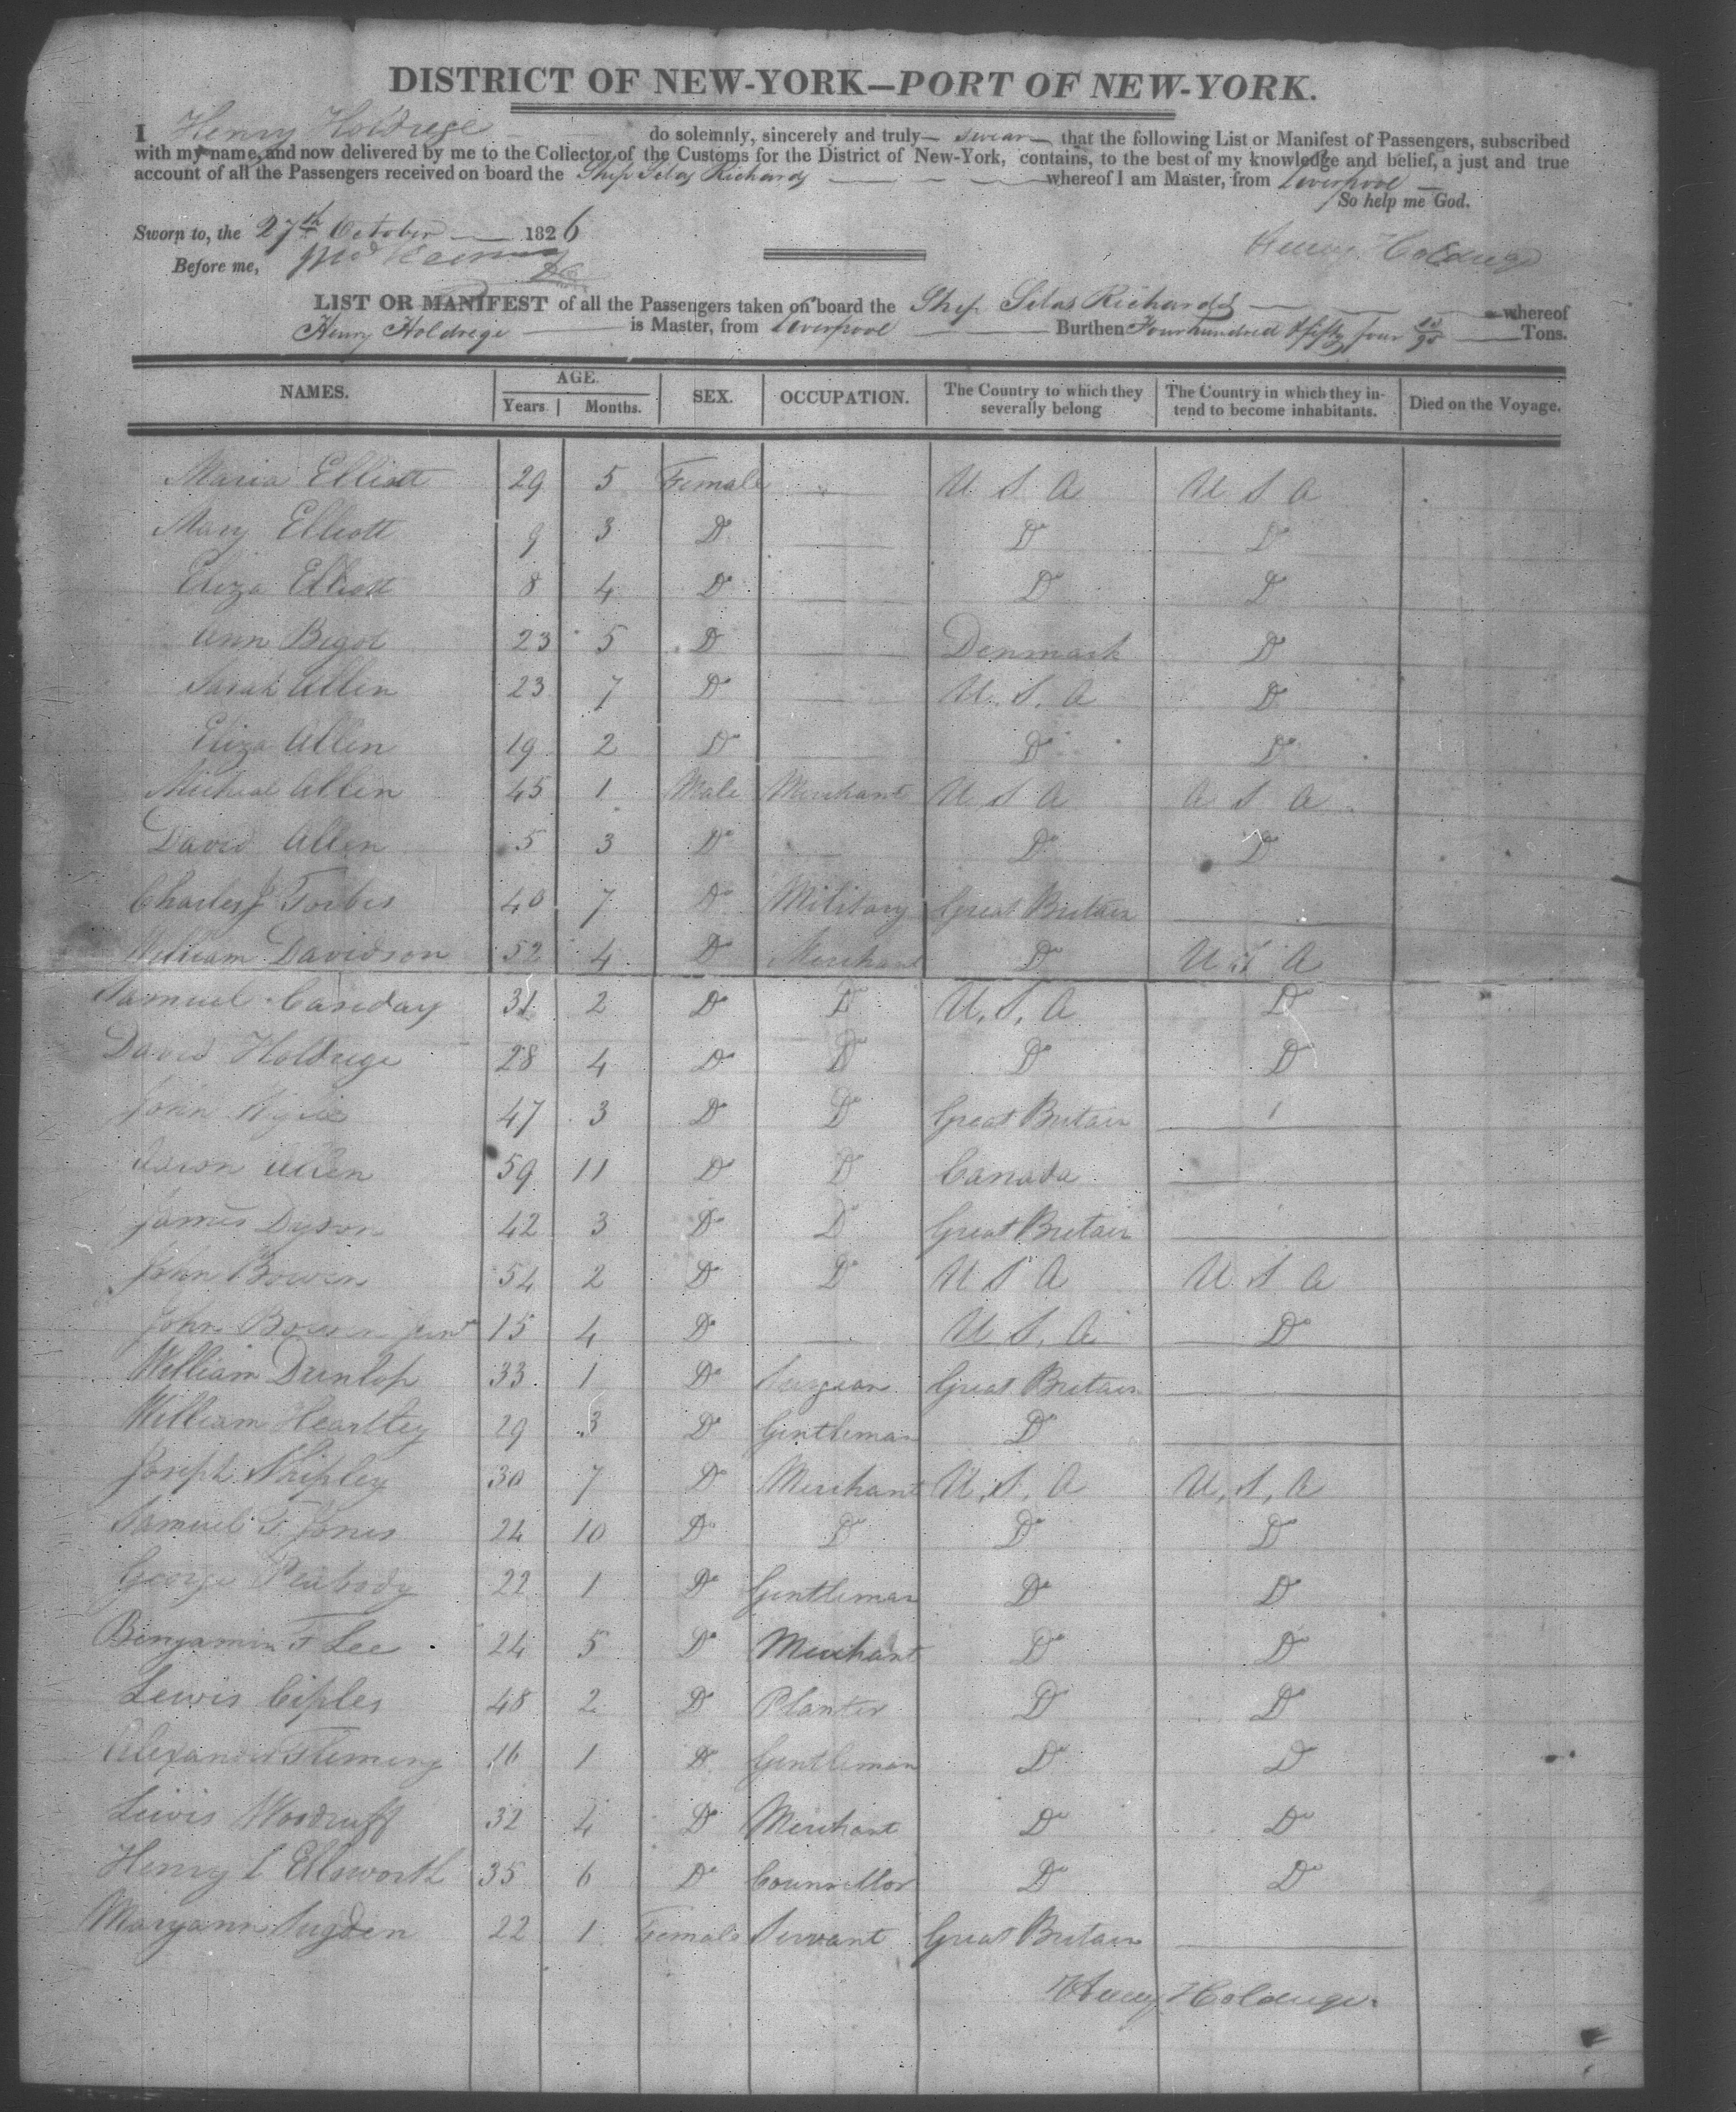 DISTRICT OF NEW-YORK—PORT OF NEW-YORK.
I Henry Holdrege do solemnly, sincerely and truly swear that the following List or Manifest of Passengers, subscribed
with my name, and now delivered by me to the Collector of the Customs for the District of New-York, contains, to the best of my knowledge and belief, a just and true
account of all the Passengers received on board the Ship Silas Richards whereof I am Master, from Liverpool
So help me God.
Sworn to, the 27th October 1826
Henry Holdrege
Before me,
LIST OR MANIFEST of all the Passengers taken on board the Ship Silas Richards whereof
Henry Holdrege is Master, from Liverpool Burthen Four hundred & fifty four Tons.
NAMES. AGE. Years. Months. SEX. OCCUPATION. The Country to which they severally belong The Country in which they intend to become inhabitants. Died on the Voyage.
Maria Elliott 29 5 Female — U S A U S A
Mary Elliott 9 3 Do — Do Do
Eliza Elliott 8 4 Do — Do Do
Ann Bigot 23 5 Do — Denmark Do
Sarah Allen 23 7 Do — U. S. A Do
Eliza Allen 19 2 Do Do Do
Micheal Allen 45 1 Male Merchant U S A U S A
David Allen 5 3 Do — Do Do
Charles J Forbes 40 7 Do Military Great Britain —
William Davidson 52 4 Do Merchant Do U S A
Samuel Caseday 31 2 Do Do U. S. A Do
David Holdrege 28 4 Do Do Do Do
John 47 3 Do Do Great Britain —
Allen 59 11 Do Do Canada —
James Dyson 42 3 Do Do Great Britain —
John Bowen 54 2 Do Do U S A U. S A
John Bowen Junr 15 4 Do — U. S. A Do
William Dunlop 33 1 Do Surgeon Great Britain —
William Heartley 29 3 Do Gentleman Do —
Joseph Shipley 30 7 Do Merchant U. S. A U. S. A
Samuel T. Jones 24 10 Do Do Do Do
George Peabody 22 1 Do Gentleman Do Do
Benjamin F Lee 24 5 Do Merchant Do Do
Lewis Ciples 48 2 Do Planter Do Do
Alexander Fleming 16 1 Do Gentleman Do Do
Lewis Woodruff 32 4 Do Merchant Do Do
Henry L Ellsworth 35 6 Do Counsellor Do Do
Maryann Sugden 22 1 Female Servant Great Britain —
Henry Holdrege